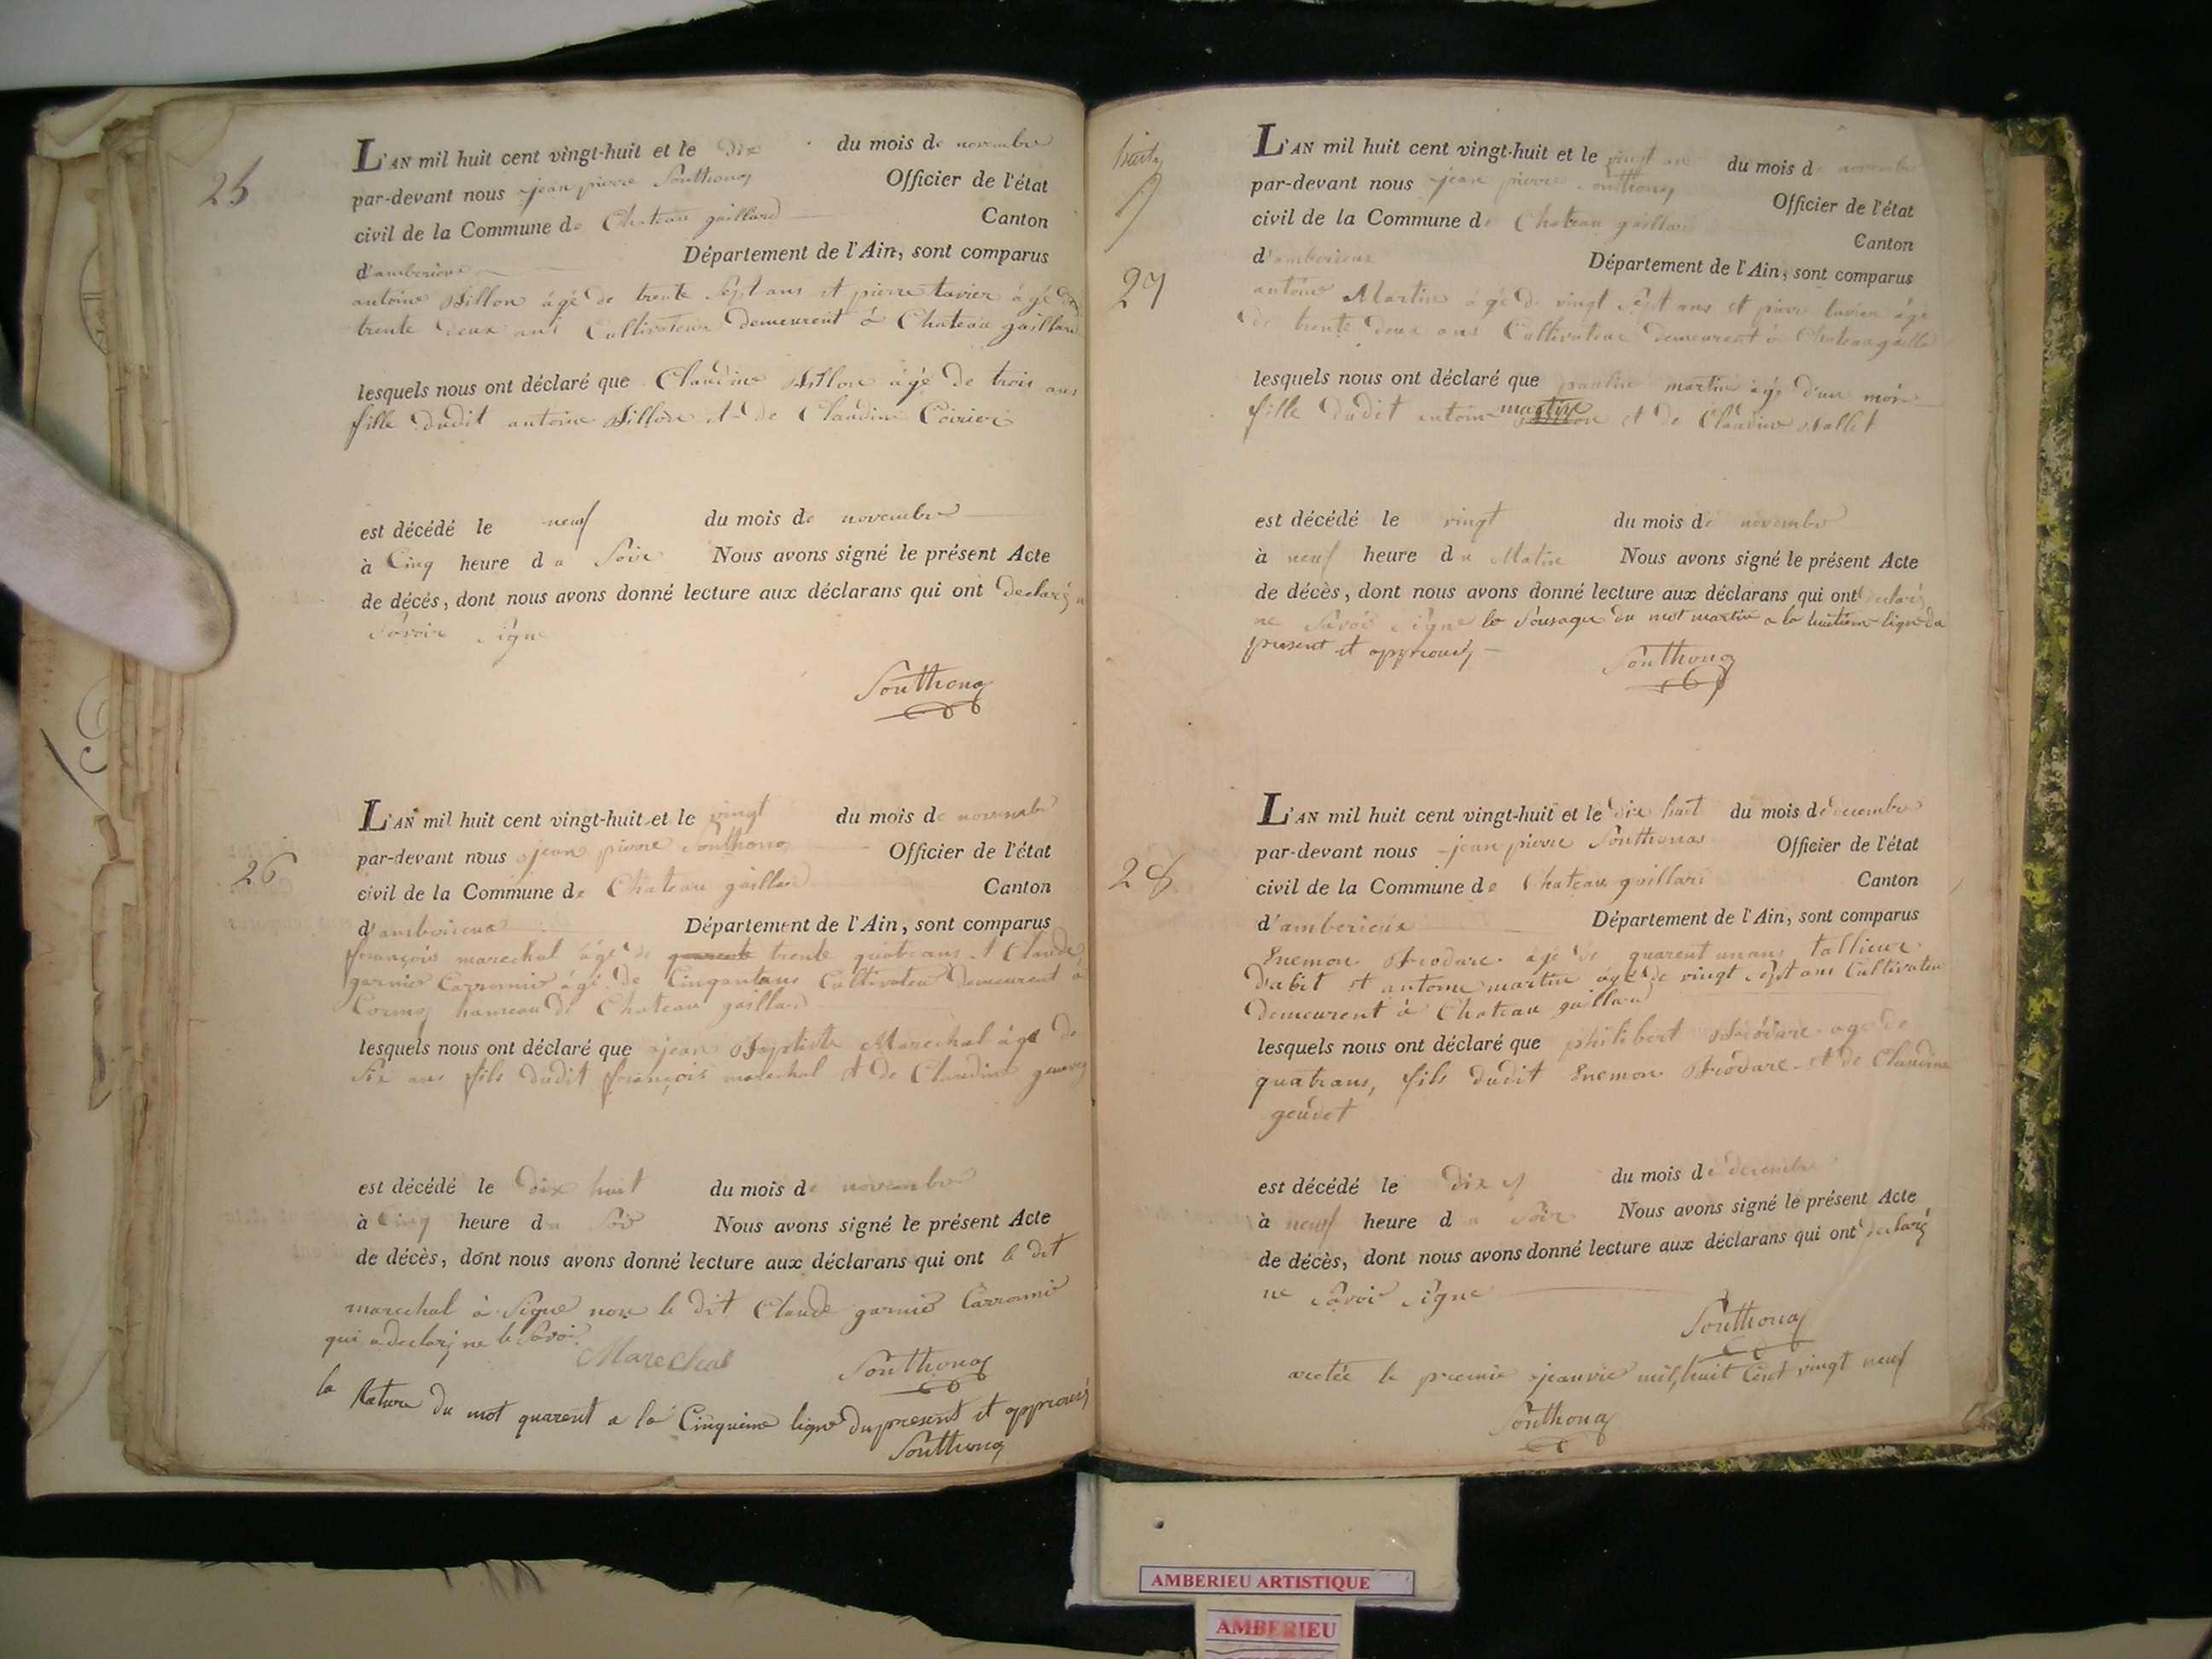 25
L'AN mil huit cent vingt-huit et le dix du mois de novembre
par-devant nous jean pierre Southonax Officier de l'état
civil de la Commune de Chateau gaillard Canton
d'amberieux Département de l'Ain, sont comparus
antoine Billon âgé de trente Sept ans et pierre tavier âgé de
trente deux ans Cultivateur demeurent à Chateau gaillard
lesquels nous ont déclaré que Claudine Billon âgé de trois ans
fille dudit antoine Billon et de Claudine
est décédé le neuf du mois de novembre
à Cinq heure du Soir Nous avons signé le présent Acte
de décès, dont nous avons donné lecture aux déclarans qui ont declaré
Savoir Signe
Southonax
26
L'AN mil huit cent vingt-huit et le vingt du mois de novembre
par-devant nous jean pierre Southonax Officier de l'état
civil de la Commune de Chateau gaillard Canton
d'amberieux Département de l'Ain, sont comparus
françois marechal âgé de quarente trente quatr ans et Claude
garnier Carronnier âgé de Cinquantans Cultivateur demeurent à
Cormoz hameau de Chateau gaillard
lesquels nous ont déclaré que jean Baptiste Marechal âgé de
Six ans fils dudit françois marechal et de Claudine
est décédé le dix huit du mois de novembre
à Cinq heure du Soir Nous avons signé le présent Acte
de décès, dont nous avons donné lecture aux déclarans qui ont le dit
marechal à Signe non le dit Claude garnier Carronnier
qui a declaré ne le Savoir
Marechal Southonax
la Rature du mot quarent a la Cinquième ligne du present et approuvé
Southonax
27
L'AN mil huit cent vingt-huit et le vingt un du mois de novembre
par-devant nous jean pierre Southonax Officier de l'état
civil de la Commune de Chateau gaillard Canton
d'amberieux Département de l'Ain, sont comparus
antoine Martin âgé de vingt Sept ans et pierre tavier âgé
de trente deux ans Cultivateur demeurent à Chateau gaillard
lesquels nous ont déclaré que martin âgé d'un mois
fille dudit antoine martin Billon et de Claudine Ballet
est décédé le vingt du mois de novembre
à neuf heure du Matin Nous avons signé le présent Acte
de décès, dont nous avons donné lecture aux déclarans qui ont declaré
ne Savoir Signe la du mot martin a la huitieme ligne du
present et approuvé
Southonax
28
L'AN mil huit cent vingt-huit et le dix huit du mois de decembre
par-devant nous jean pierre Southonax Officier de l'état
civil de la Commune de Chateau gaillard Canton
d'amberieux Département de l'Ain, sont comparus
Enemon Brodare âgé de quarent un ans tallieur
d'abit et antoine martin âgé de vingt Sept ans Cultivateur
demeurent à Chateau gaillard
lesquels nous ont déclaré que philibert Brodare age de
quatrans, fils dudit Enemon Brodare et de Claudine
goudet
est décédé le dix 7 du mois de decembre
à neuf heure du Soir Nous avons signé le présent Acte
de décès, dont nous avons donné lecture aux déclarans qui ont declaré
ne Savoir Signe
Southonax
aretée le premie jeanvie mil huit Cent vingt neuf
Southonax
AMBERIEU ARTISTIQUE
AMBERIEU